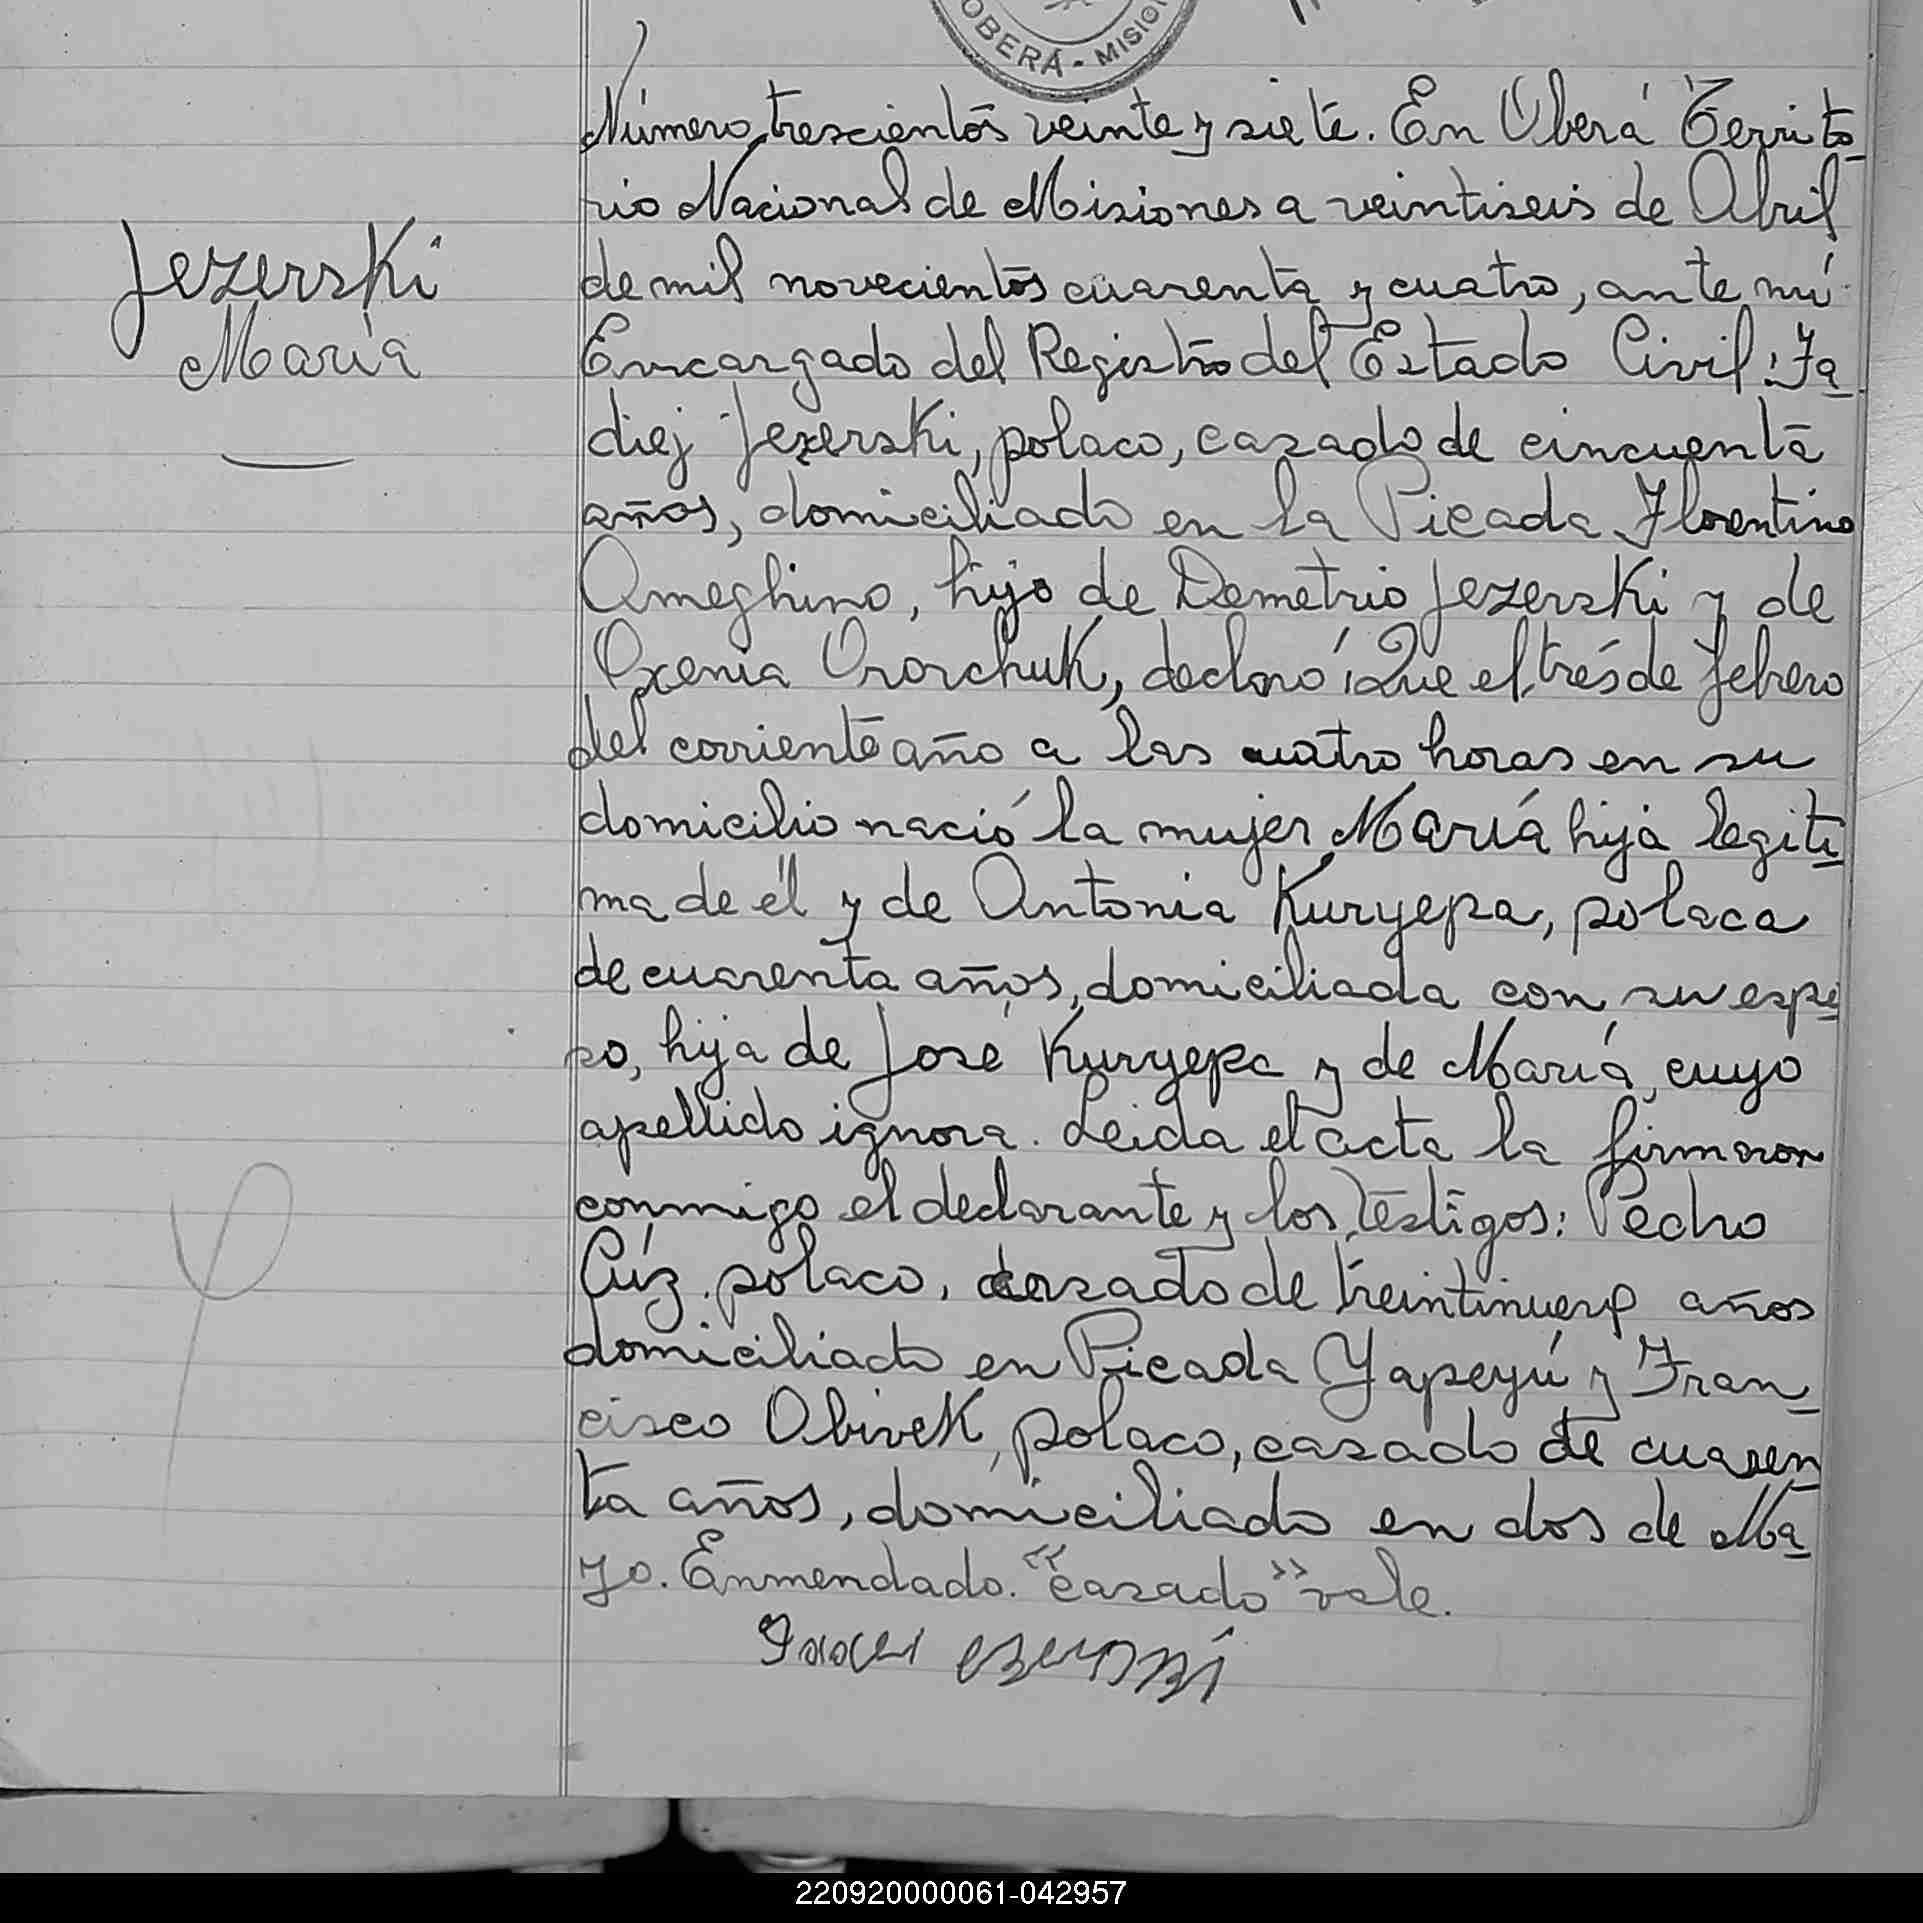 OBERÁ - MISIO
Jezerski
María
Número trescientos veinte y siete. En Oberá Territo-
rio Nacional de Misiones a veintiseis de Abril
de mil novecientos cuarenta y cuatro, ante mí
Encargado del Registro del Estado Civil: Fa-
diej Jezerski, polaco, casado de cincuenta
años, domiciliado en la Picada Florentino
Ameghino, hijo de Demetrio Jezerski y de
Oxenia Ororchuk, declaró: Que el tres de febrero
del corriente año a las cuatro horas en su
domicilio nació la mujer María hija legiti-
ma de él y de Antonia Kuryepa, polaca
de cuarenta años, domiciliada con su espo-
so, hija de José Kuryepa y de María, cuyo
apellido ignora. Leida el acta la firmaron
conmigo el declarante y los testigos: Pedro
polaco, casado de treintinueve años
domiciliado en Picada Yapeyú y Fran-
cisco Obivek, polaco, casado de cuaren-
ta años, domiciliado en dos de Ma-
yo. Enmendado. "casado" vale.
220920000061-042957